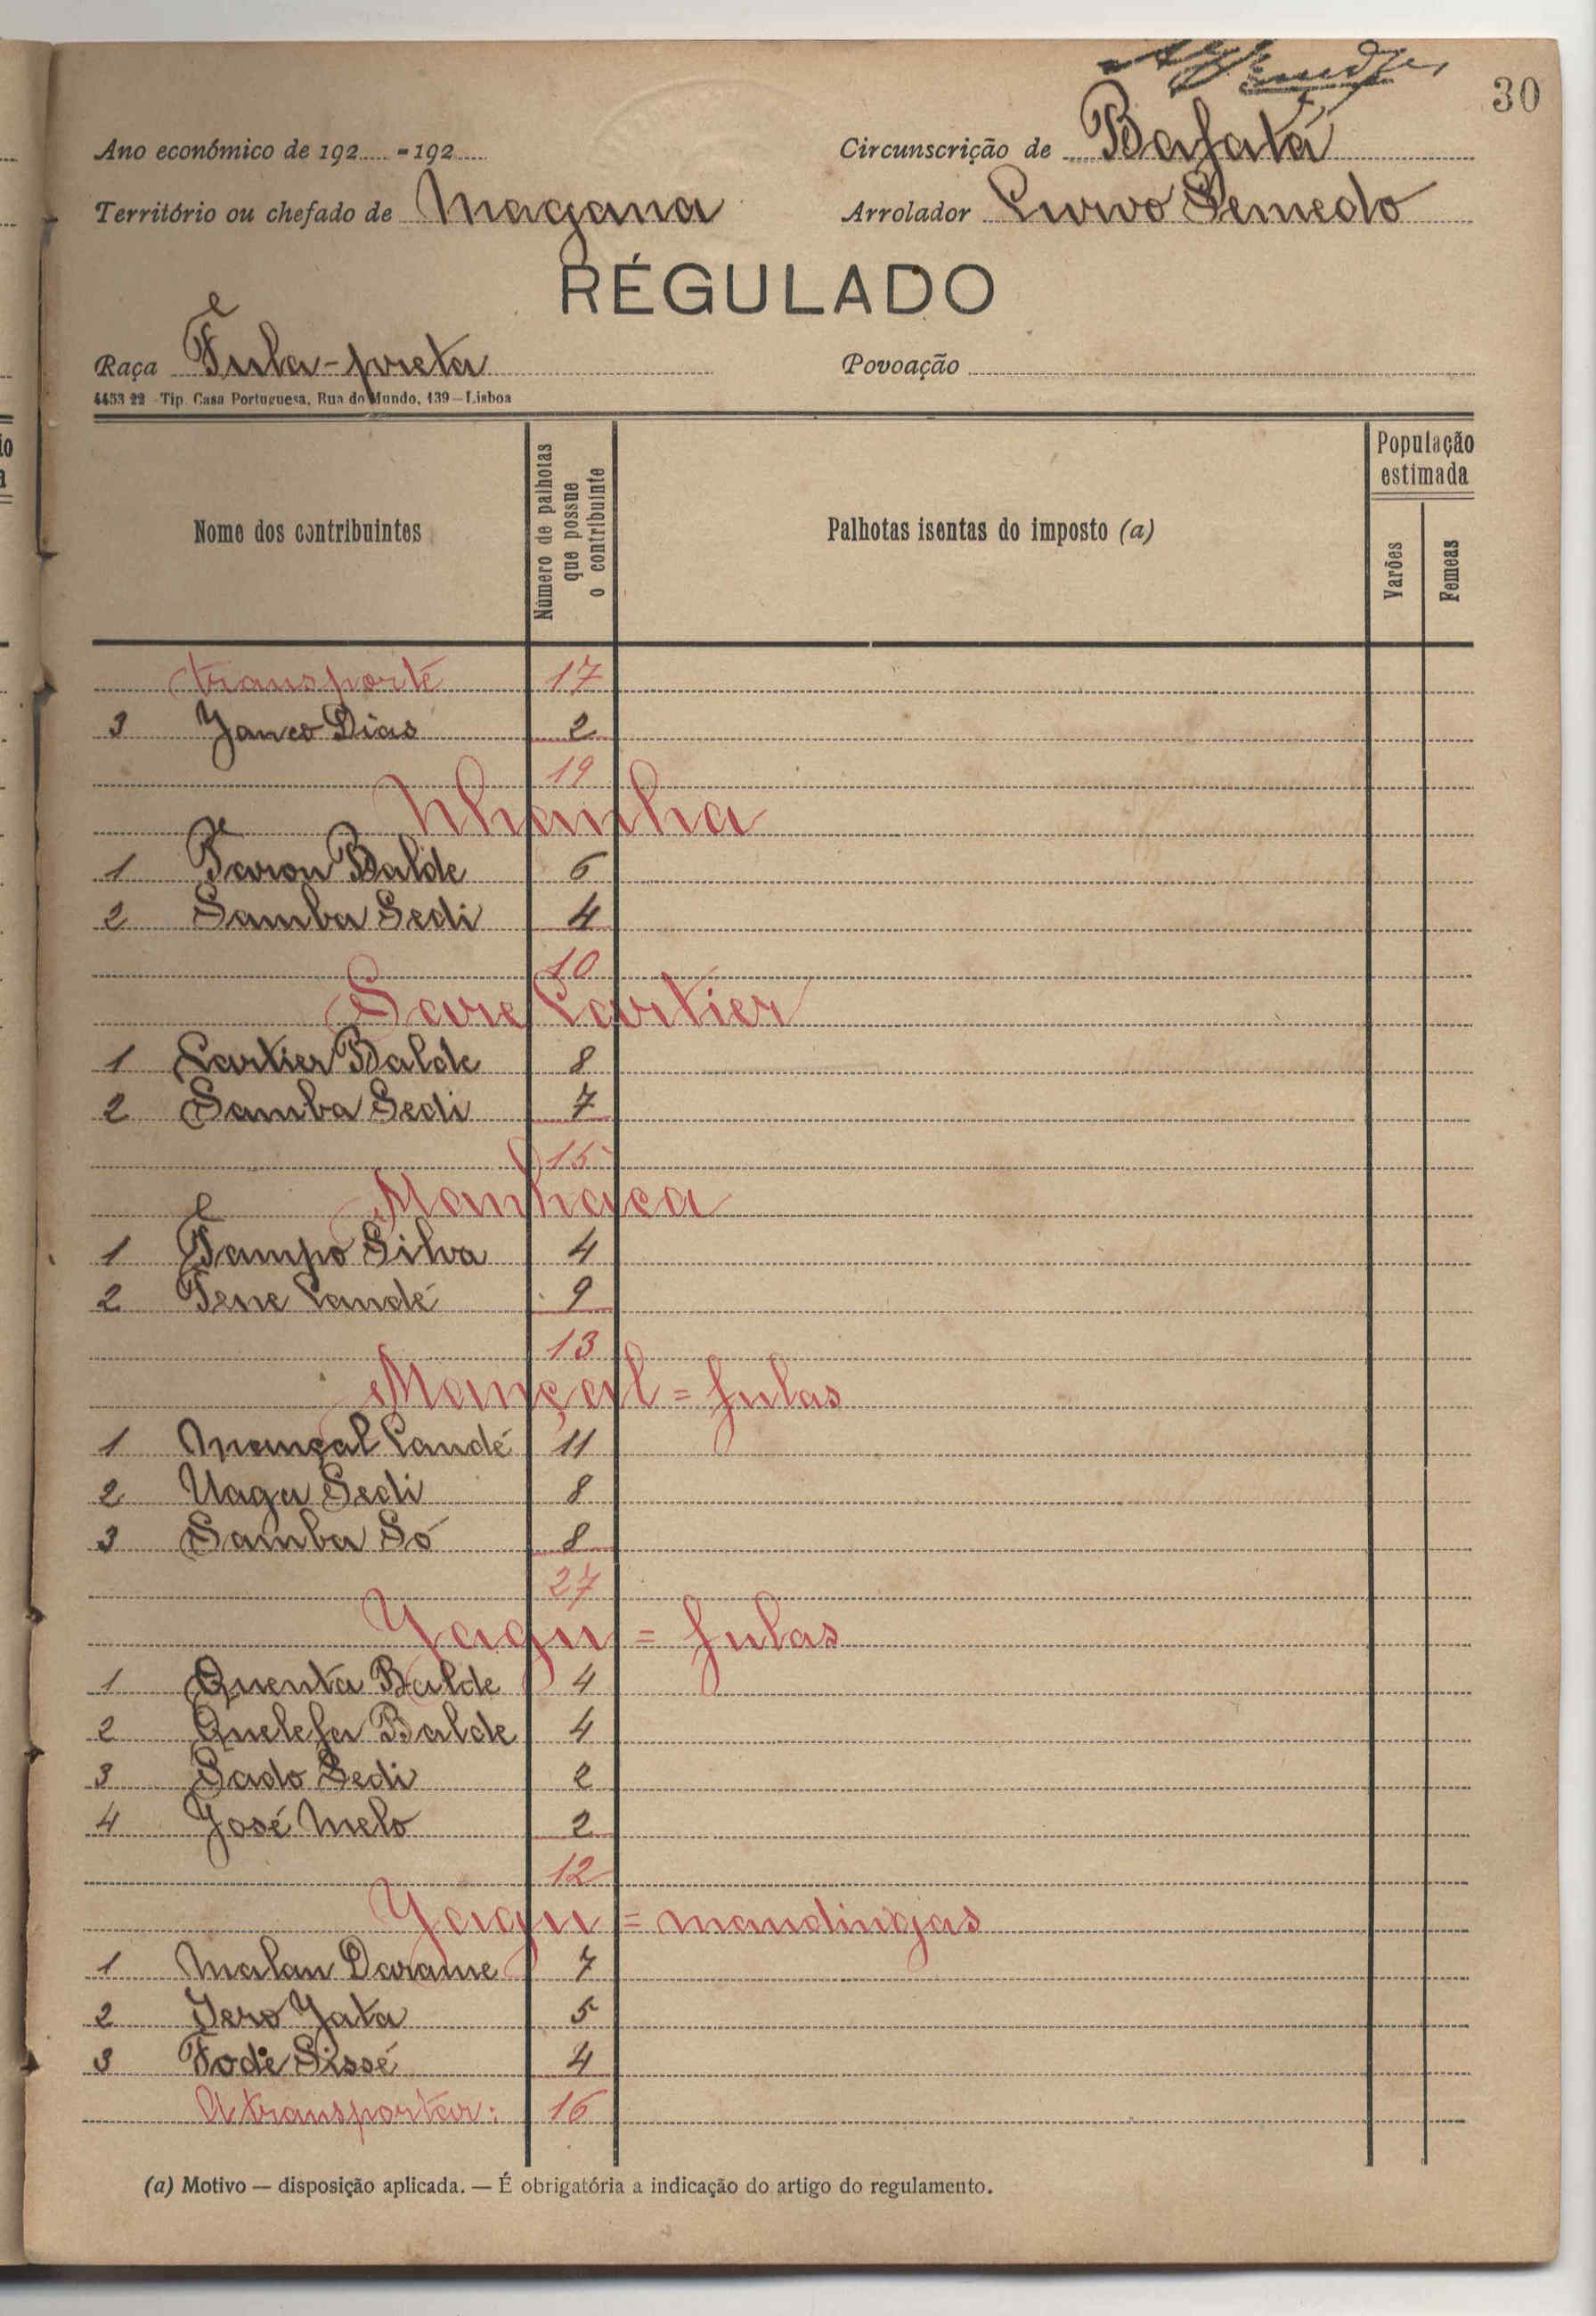 30
Ano económico de 192..... - 192.....
Circunscrição de Bafatá
Território ou chefado de Magana
Arrolador Curvo Semedo
RÉGULADO
Raça Fula-preta
Povoação
4453 22 - Tip. Casa Portuguesa, Rua do Mundo, 139 - Lisboa
Nome dos contribuintes
Número de palhotas que possue o contribuinte
Palhotas isentas do imposto (a)
População estimada
Varões
Femeas
transporte 17
3 Janco Dias 2
19
Nhanha
1 Taron Balde 6
2 Samba Sedi 4
10
Sare Cartier
1 Cartier Balde 8
2 Samba Sedi 7
15
Manhaca
1 Fampo Silva 4
2 Tene Candé 9
13
Mançal = fulas
1 Mançal Candé 11
2 Uaga Sedi 8
3 Samba Só 8
27
Yagu = fulas
1 Quenta Balde 4
2 Quelefa Balde 4
3 Sado Sedi 2
4 José Melo 2
12
Yagu = mandingas
1 Malan Darame 7
2 Jero Jata 5
3 Fodé Sissé 4
A transportar: 16
(a) Motivo — disposição aplicada. — É obrigatória a indicação do artigo do regulamento.